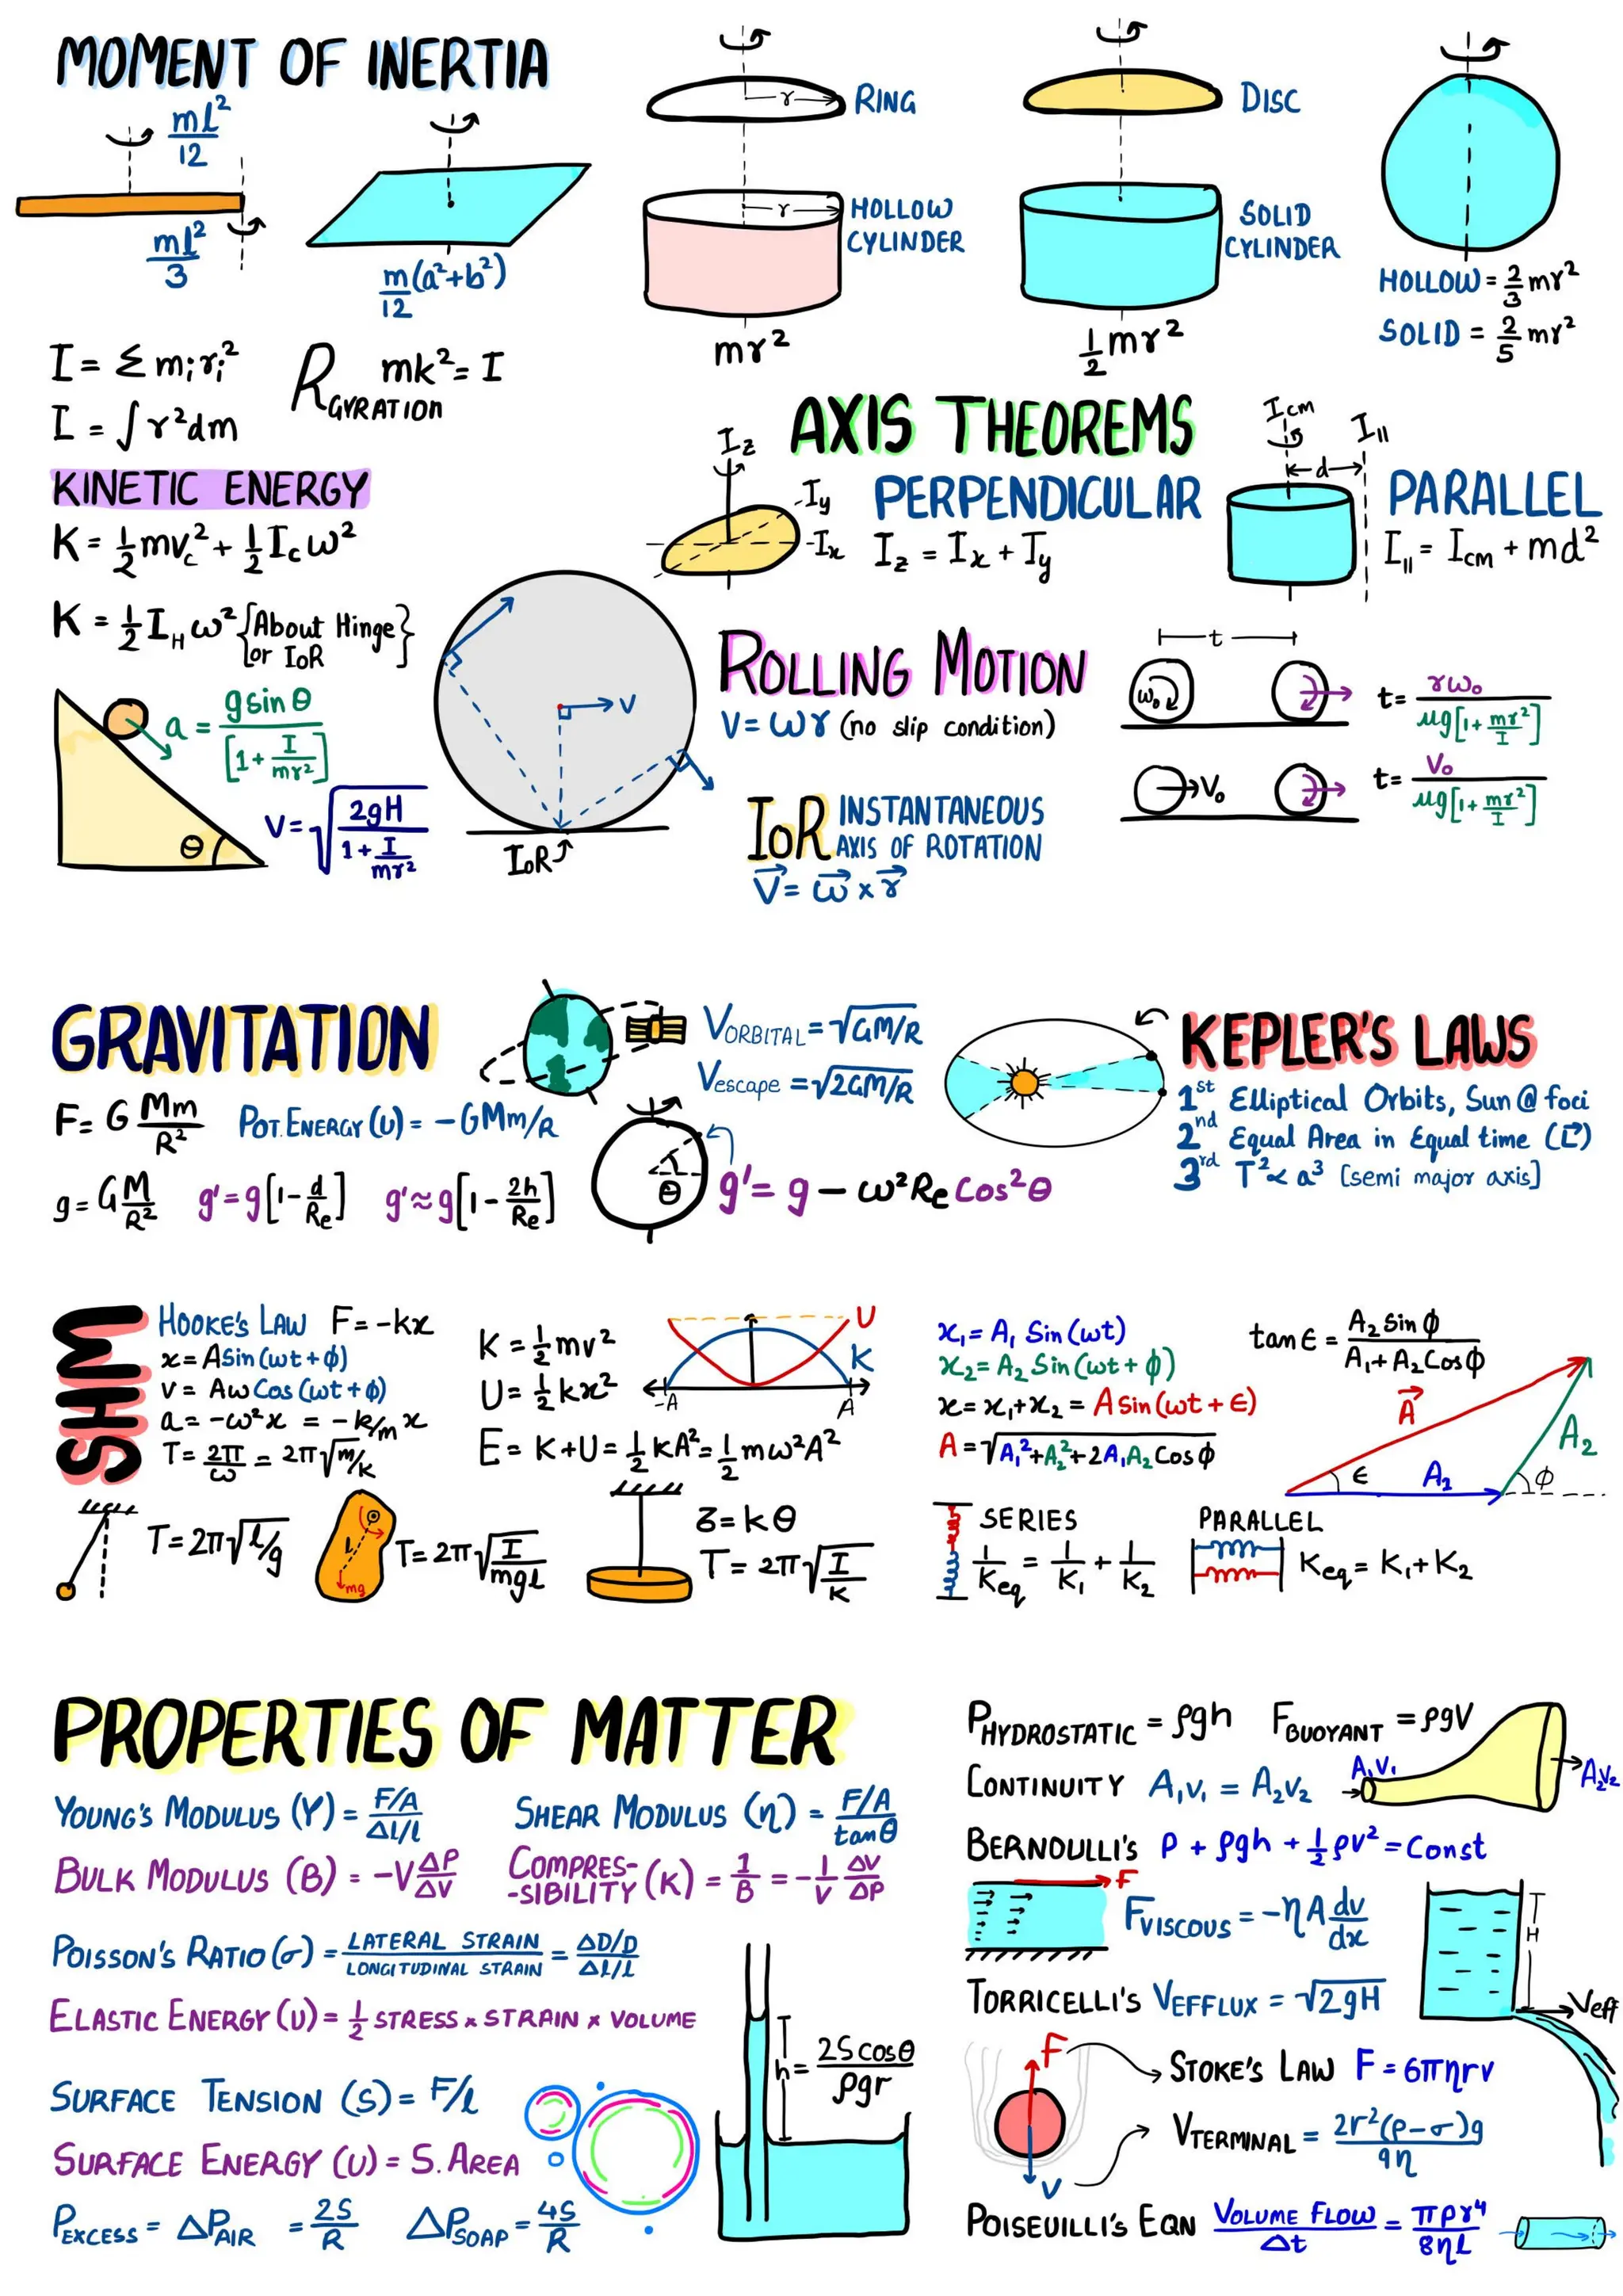 MOMENT OF INERTIA
ml²/12
ml²/3
m/12 (a²+b²)
r
RING
r
HOLLOW
CYLINDER
mr²
DISC
SOLID
CYLINDER
1/2 mr²
HOLLOW = 2/3 mr²
SOLID = 2/5 mr²
I = Σ mᵢrᵢ²
I = ∫ r²dm
R GYRATION mk² = I
KINETIC ENERGY
K = 1/2 mv_c² + 1/2 I_c ω²
K = 1/2 I_H ω² {About Hinge
or IoR}
a = g sin θ / [1 + I/mr²]
θ
V = √(2gH / (1 + I/mr²))
v
IoR
AXIS THEOREMS
I_z
I_y
I_x
PERPENDICULAR
I_z = I_x + I_y
I_cm
I_||
d
PARALLEL
I_|| = I_cm + md²
ROLLING MOTION
V = ωr (no slip condition)
t
ω₀
t = rω₀ / μg[1 + mr²/I]
V₀
t = V₀ / μg[1 + mr²/I]
IoR INSTANTANEOUS
AXIS OF ROTATION
V⃗ = ω⃗ × r⃗
GRAVITATION
V_ORBITAL = √GM/R
V_escape = √2GM/R
F = G Mm/R²
POT. ENERGY (U) = -GMm/R
g = G M/R²
g' = g[1 - d/Re]
g' ≈ g[1 - 2h/Re]
θ
g' = g - ω²Re Cos²θ
KEPLER'S LAWS
1st Elliptical Orbits, Sun @ foci
2nd Equal Area in Equal time (L⃗)
3rd T² ∝ a³ [semi major axis]
SHM
HOOKE'S LAW F = -kx
x = A Sin (ωt + ϕ)
v = Aω Cos (ωt + ϕ)
a = -ω²x = -k/m x
T = 2π/ω = 2π√m/k
K = 1/2 mv²
U = 1/2 kx²
E = K+U = 1/2 KA² = 1/2 mω²A²
U
K
-A
A
x₁ = A₁ Sin (ωt)
x₂ = A₂ Sin (ωt + ϕ)
x = x₁+x₂ = A sin (ωt + ϵ)
A = √A₁²+A₂²+2A₁A₂ Cos ϕ
tan ϵ = A₂ sin ϕ / A₁ + A₂ Cos ϕ
A⃗
A₂
ϵ
A₂
ϕ
T = 2π√l/g
l
mg
T = 2π√(I/mgl)
τ = kθ
T = 2π√(I/K)
SERIES
1/Keq = 1/K₁ + 1/K₂
PARALLEL
Keq = K₁ + K₂
PROPERTIES OF MATTER
YOUNG'S MODULUS (Y) = F/A / Δl/l
SHEAR MODULUS (η) = F/A / tan θ
BULK MODULUS (B) = -V ΔP/ΔV
COMPRES-
-SIBILITY (K) = 1/B = -1/V ΔV/ΔP
POISSON'S RATIO (σ) = LATERAL STRAIN / LONGITUDINAL STRAIN = ΔD/D / Δl/l
ELASTIC ENERGY (U) = 1/2 STRESS × STRAIN × VOLUME
SURFACE TENSION (S) = F/l
SURFACE ENERGY (U) = S. AREA
P_EXCESS = ΔP_AIR = 2S/R
ΔP_SOAP = 4S/R
h = 2S cos θ / ρgr
P_HYDROSTATIC = ρgh
F_BUOYANT = ρgV
CONTINUITY A₁v₁ = A₂v₂
A₁V₁
A₂V₂
BERNOULLI'S P + ρgh + 1/2 ρv² = Const
F
F_VISCOUS = -ηA dv/dx
TORRICELLI'S V_EFFLUX = √2gH
H
Veff
F
v
STOKE'S LAW F = 6πηrv
V_TERMINAL = 2r²(ρ-σ)g / 9η
POISEUILLI'S EQN VOLUME FLOW / Δt = πpr⁴ / 8ηl